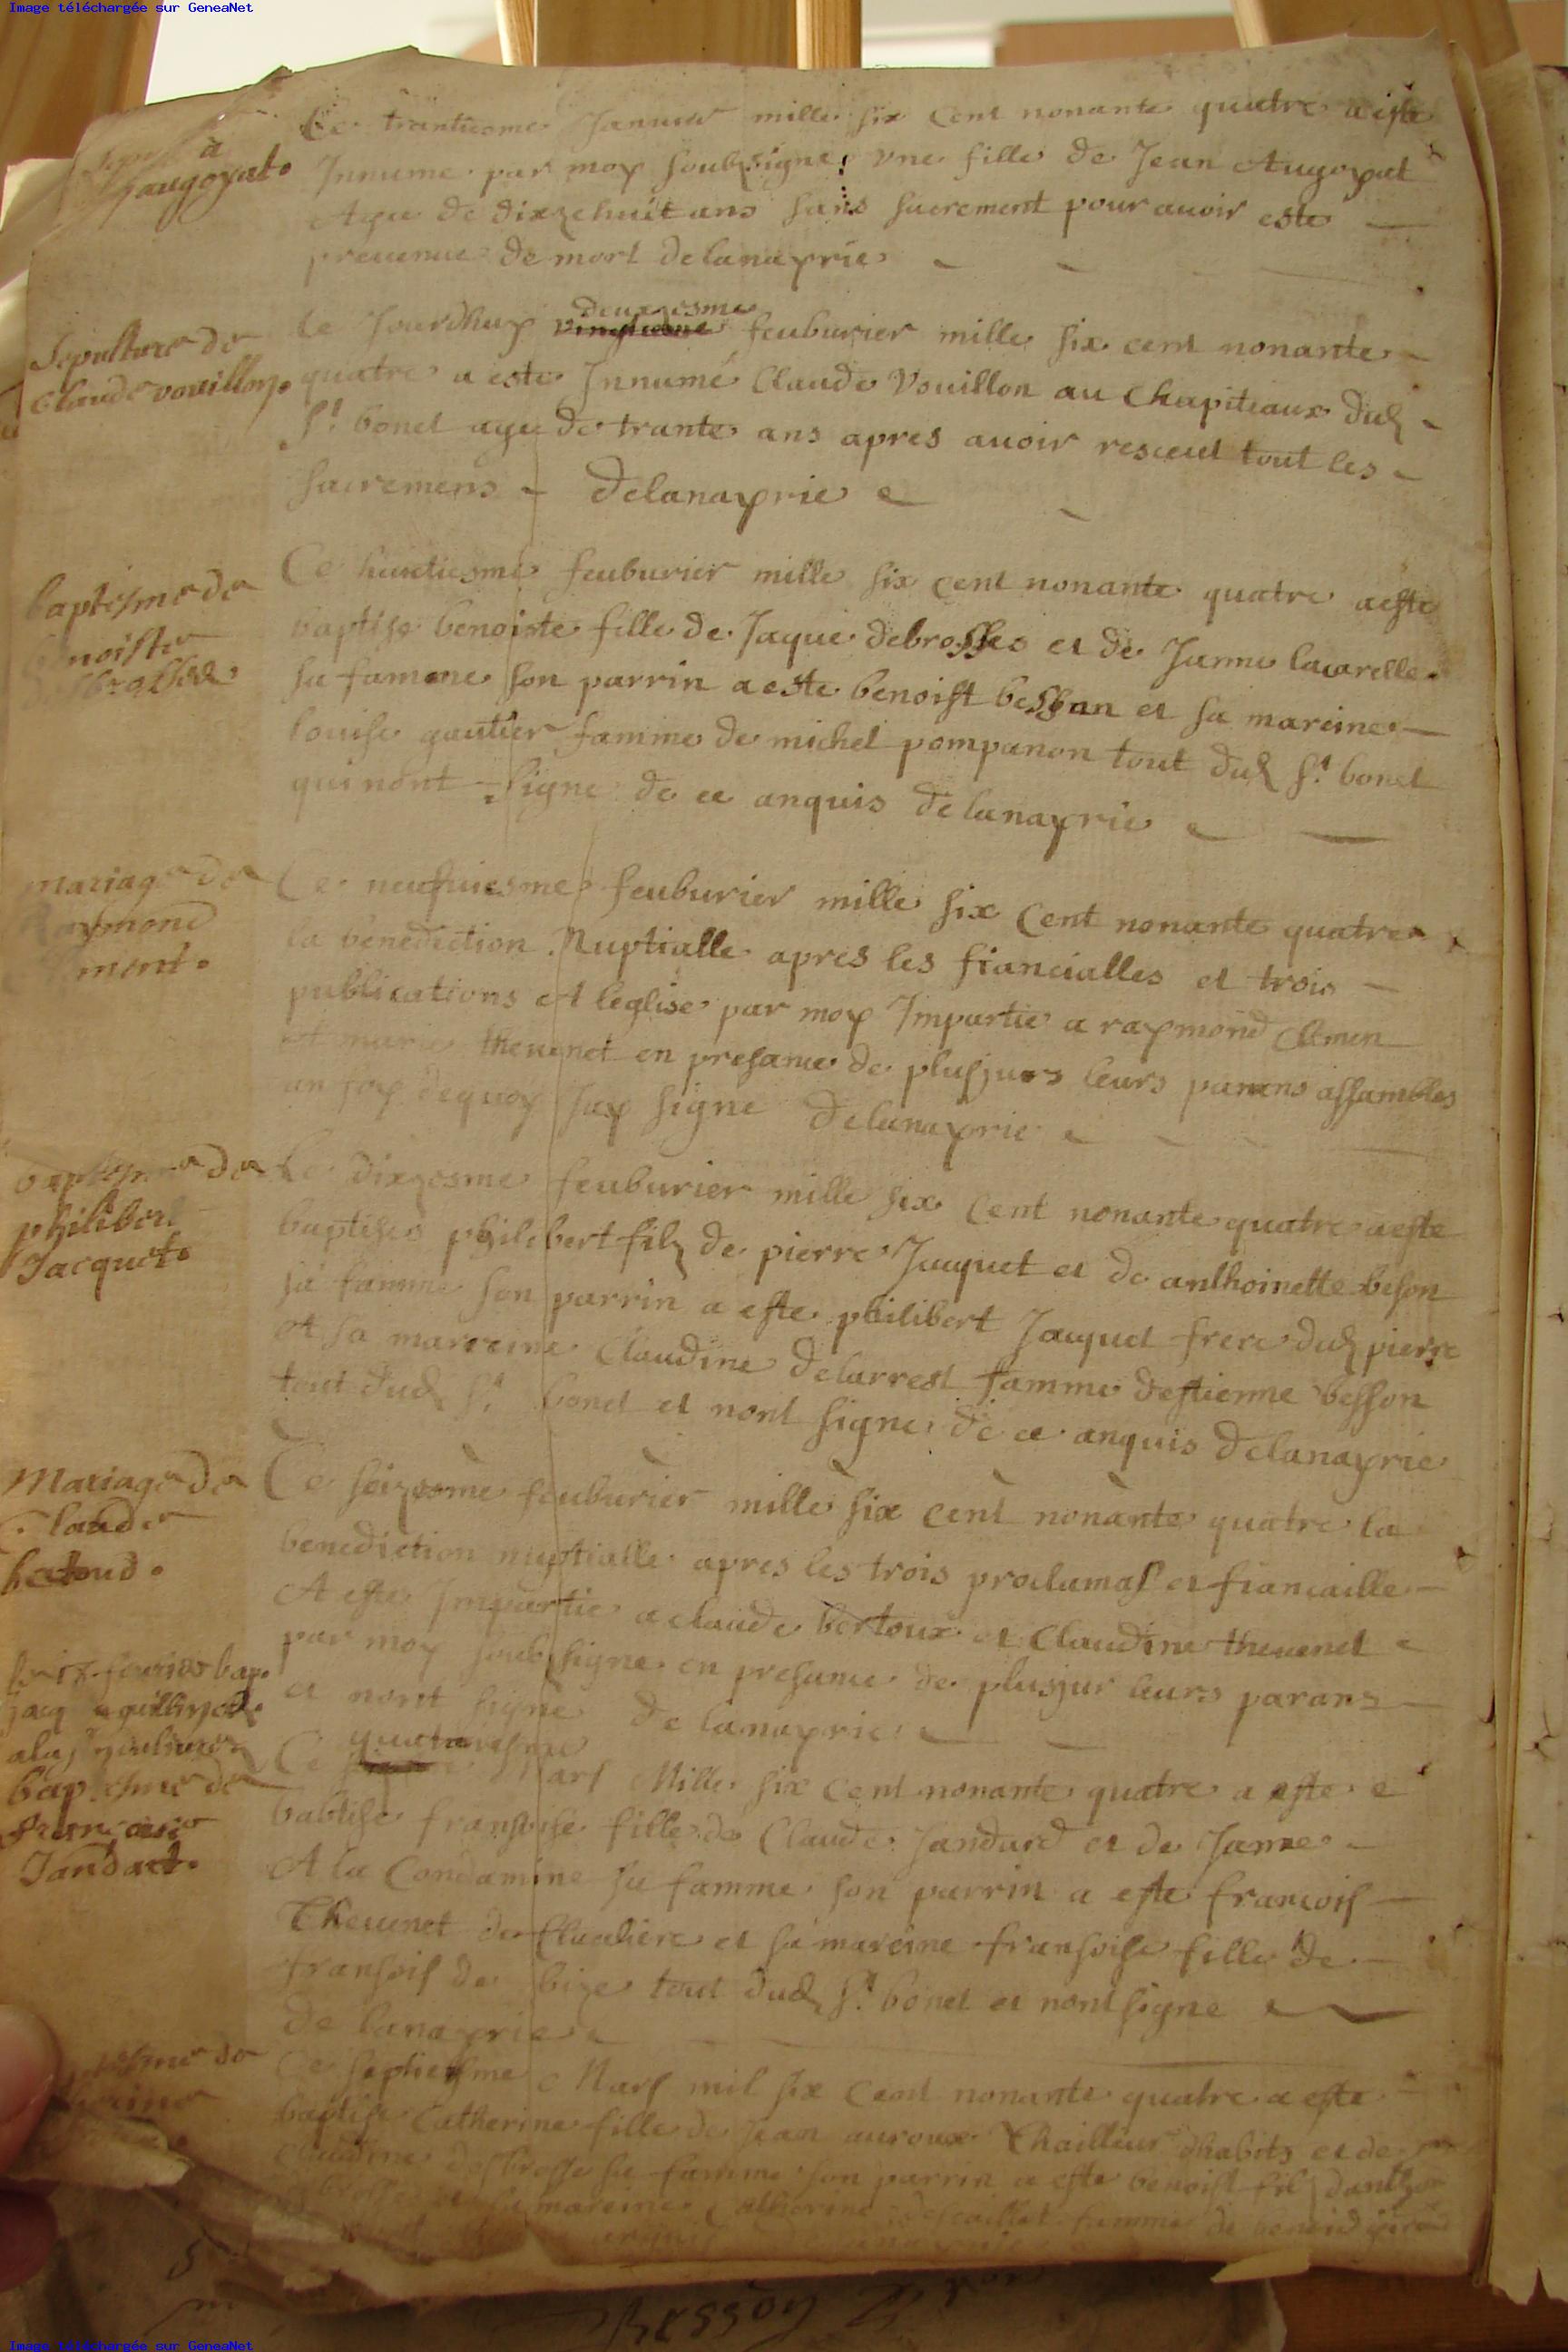 Image téléchargée sur GeneaNet
Ce trantiesme Januier mille six cent nonante quatre a este
Innume par moy soubsigne une fille de Jean Augoyat
Agee de dixzehuit ans sans sacrement pour auoir este
preuenue de mort delanayrie
a
Jaugoyat
Ce Jourdhuy vingtiesme deuxzesme feuburier mille six cent nonante
quatre a este Innumé Claude Vouillon au Chapitiaux dud
St bonet age de trante ans apres auoir resceut tout les
sacremens delanayrie
Sepulture de
Claude vouillon
Ce huictiesme feuburier mille six cent nonante quatre aeste
baptise benoiste fille de Jaque debrosses et de Janne lacarelle
sa famme son parrin a este benoist besson et sa mareine
louise gautier famme de michel pompanon tout dud St bonet
qui nont signe de ce anquis delanayrie
baptesme de
Ce neufuiesme feuburier mille six Cent nonante quatre
la benediction Nuptialle apres les fiancialles et trois
publications et leglise par moy Impartie a raymond Clemen
et marie theuenet en presance de plusjurs leurs parans assambles
dequoy jay signe Delanayrie
Mariage de
Raymond
ment
Ce dixzesme feuburier mille six Cent nonante quatre aeste
baptises philibert filz de pierre Jaquet et de anthoinette beson
sa famme son parrin a este philibert Jaquet frere dud pierre
et sa marreine Claudine delarrest famme destienne besson
tout dud St bonet et nont signe de ce anquis delanayrie
baptesme de
philibert
Jacquet
Ce seizesme feuburier mille six cent nonante quatre la
benediction nuptialle apres les trois proclamas et fiancaille
A este Impartie a claude bertoux et Claudine theuenet
par moy soubsigne en presance de plusjur leurs parans
et nont signe de lanayrie
Mariage de
Claude
Ce quatriesme Mars Mille six cent nonante quatre a este
babtise fransoise fille de Claude Jandard et de Janne
A la Condamine sa famme son parrin a este francois
Theuenet de et sa mareine fransoise fille de
fransois de bize tout dud St bonet et nont signe
De lanayrie
baptesme de
francoise
Jandart
Ce septiesme Mars mil six Cent nonante quatre a este
baptise Catherine fille de Jean auroux Thailleur dhabits et de
Claudine desbrosse sa famme son parrin a este benoist filz
mareine Catherine famme de
Image téléchargée sur GeneaNet